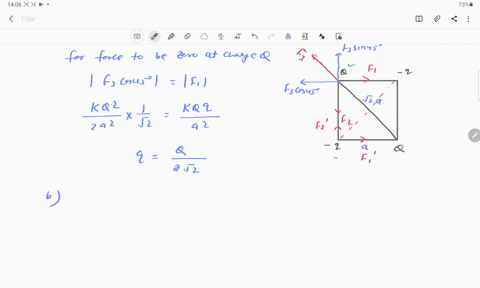 14:08
73%
Title
For force to be zero at charge Q
| F3 cos45° | = | F1 |
KQ² / 2a² × 1/√2 = KQq / a²
q = Q / 2√2
b)
F3 sin45°
F3
Q
F1
-q
F3 cos45°
√2 a
F2'
F2
-q
a
Q
F1'